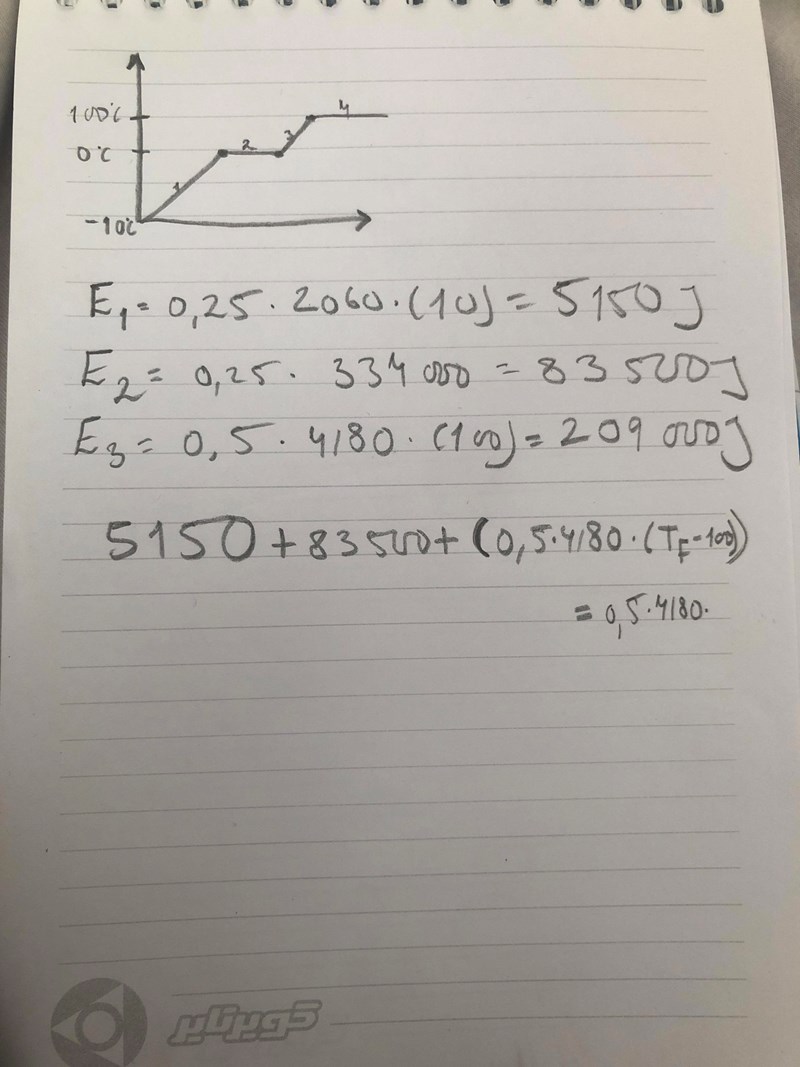 100°C
0°C
-10°C
1
2
3
4
E₁ = 0,25 · 2060 · (10) = 5150 J
E₂ = 0,25 · 334 000 = 83 500 J
E₃ = 0,5 · 4180 · (100) = 209 000 J
5150 + 83 500 + (0,5 · 4180 · (T_F - 100))
= 0,5 · 4180 ·